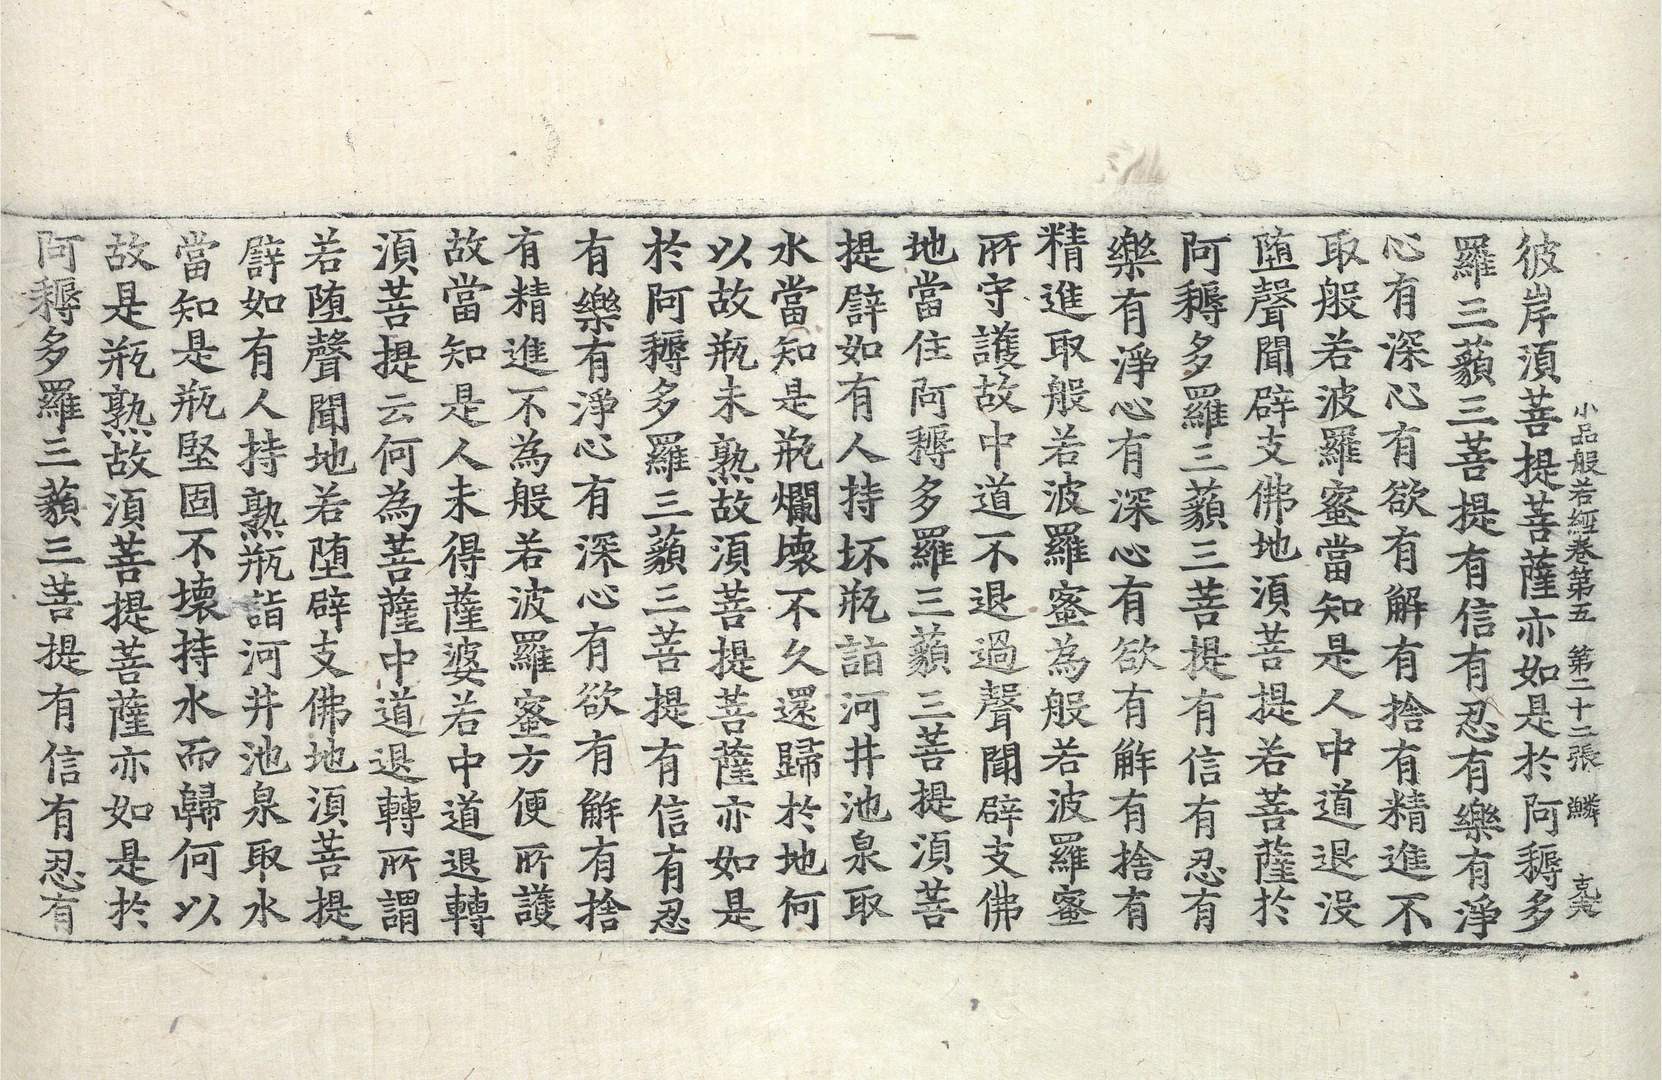 小品般若經卷第五 第二十二張 鱗 克
彼岸湏菩提菩薩亦如是於阿耨多
羅三藐三菩提有信有忍有樂有淨
心有深心有欲有解有捨有精進不
取般若波羅蜜當知是人中道退沒
堕聲聞辟支佛地湏菩提若菩薩於
阿耨多羅三藐三菩提有信有忍有
樂有淨心有深心有欲有解有捨有
精進取般若波羅蜜為般若波羅蜜
所守護故中道不退過聲聞辟支佛
地當住阿耨多羅三藐三菩提湏菩
提譬如有人持坏瓶詣河井池泉取
水當知是瓶爛壊不久還歸於地何
以故瓶未熟故湏菩提菩薩亦如是
於阿耨多羅三藐三菩提有信有忍
有樂有淨心有深心有欲有解有捨
有精進不為般若波羅蜜方便所護
故當知是人未得薩婆若中道退轉
湏菩提云何為菩薩中道退轉所謂
若堕聲聞地若堕辟支佛地湏菩提
譬如有人持熟瓶詣河井池泉取水
當知是瓶堅固不壊持水而歸何以
故是瓶熟故湏菩提菩薩亦如是於
阿耨多羅三藐三菩提有信有忍有